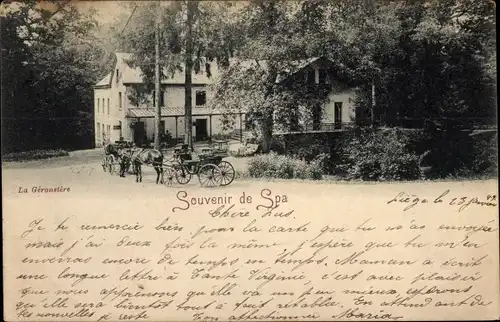 La Géroustère
Souvenir de Spa
Liège le 23 janv 99
Chère
Je te remercie bien pour la carte que tu m'as envoyée
mais j'ai deux fois la même j'espère que tu m'en
enverras encore de temps en temps. Maman a écrit
une longue lettre à Tante Virginie, c'est avec plaisir
que nous apprenons qu'elle va un peu mieux espérons
qu'elle sera bientôt tout à fait rétablie. En attendant de
tes nouvelles je reste Ton affectionnée Maria